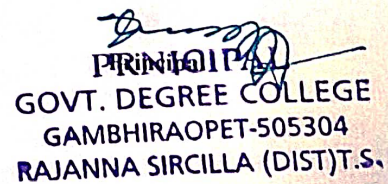 Principal
PRINCIPAL
GOVT. DEGREE COLLEGE
GAMBHIRAOPET-505304
RAJANNA SIRCILLA (DIST)T.S.